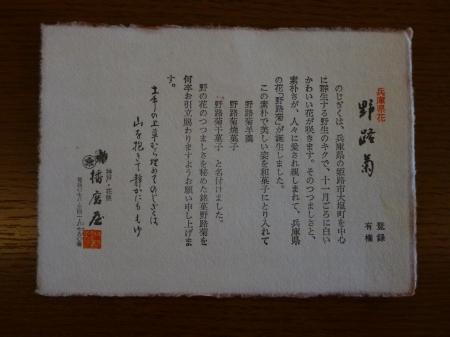 兵庫県花
野路菊
登録
有権
のじぎくは、兵庫県の姫路市大塩町を中心
に群生する野生のキクで、十一月ごろに白い
かわいい花が咲きます。そのつつましさと、
素朴さが、人々に愛され親しまれて、兵庫県
の花「野路菊」が誕生しました。
この素朴で美しい姿を和菓子にとり入れて
野路菊羊羹
野路菊焼菓子
野路菊干菓子 と名付けました。
野の花のつつましさを秘めた銘菓野路菊を
何卒お引立賜わりますようお願い申し上げま
す。
山を抱きて静かにも
神戸・花隈
播磨屋